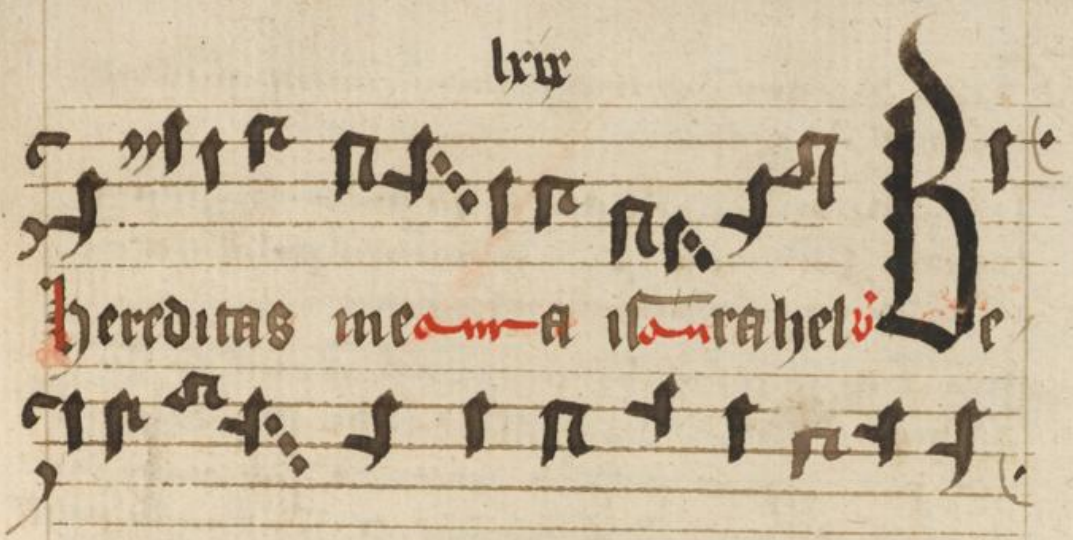 lxix
hereditas mea a israhel v̇ Be